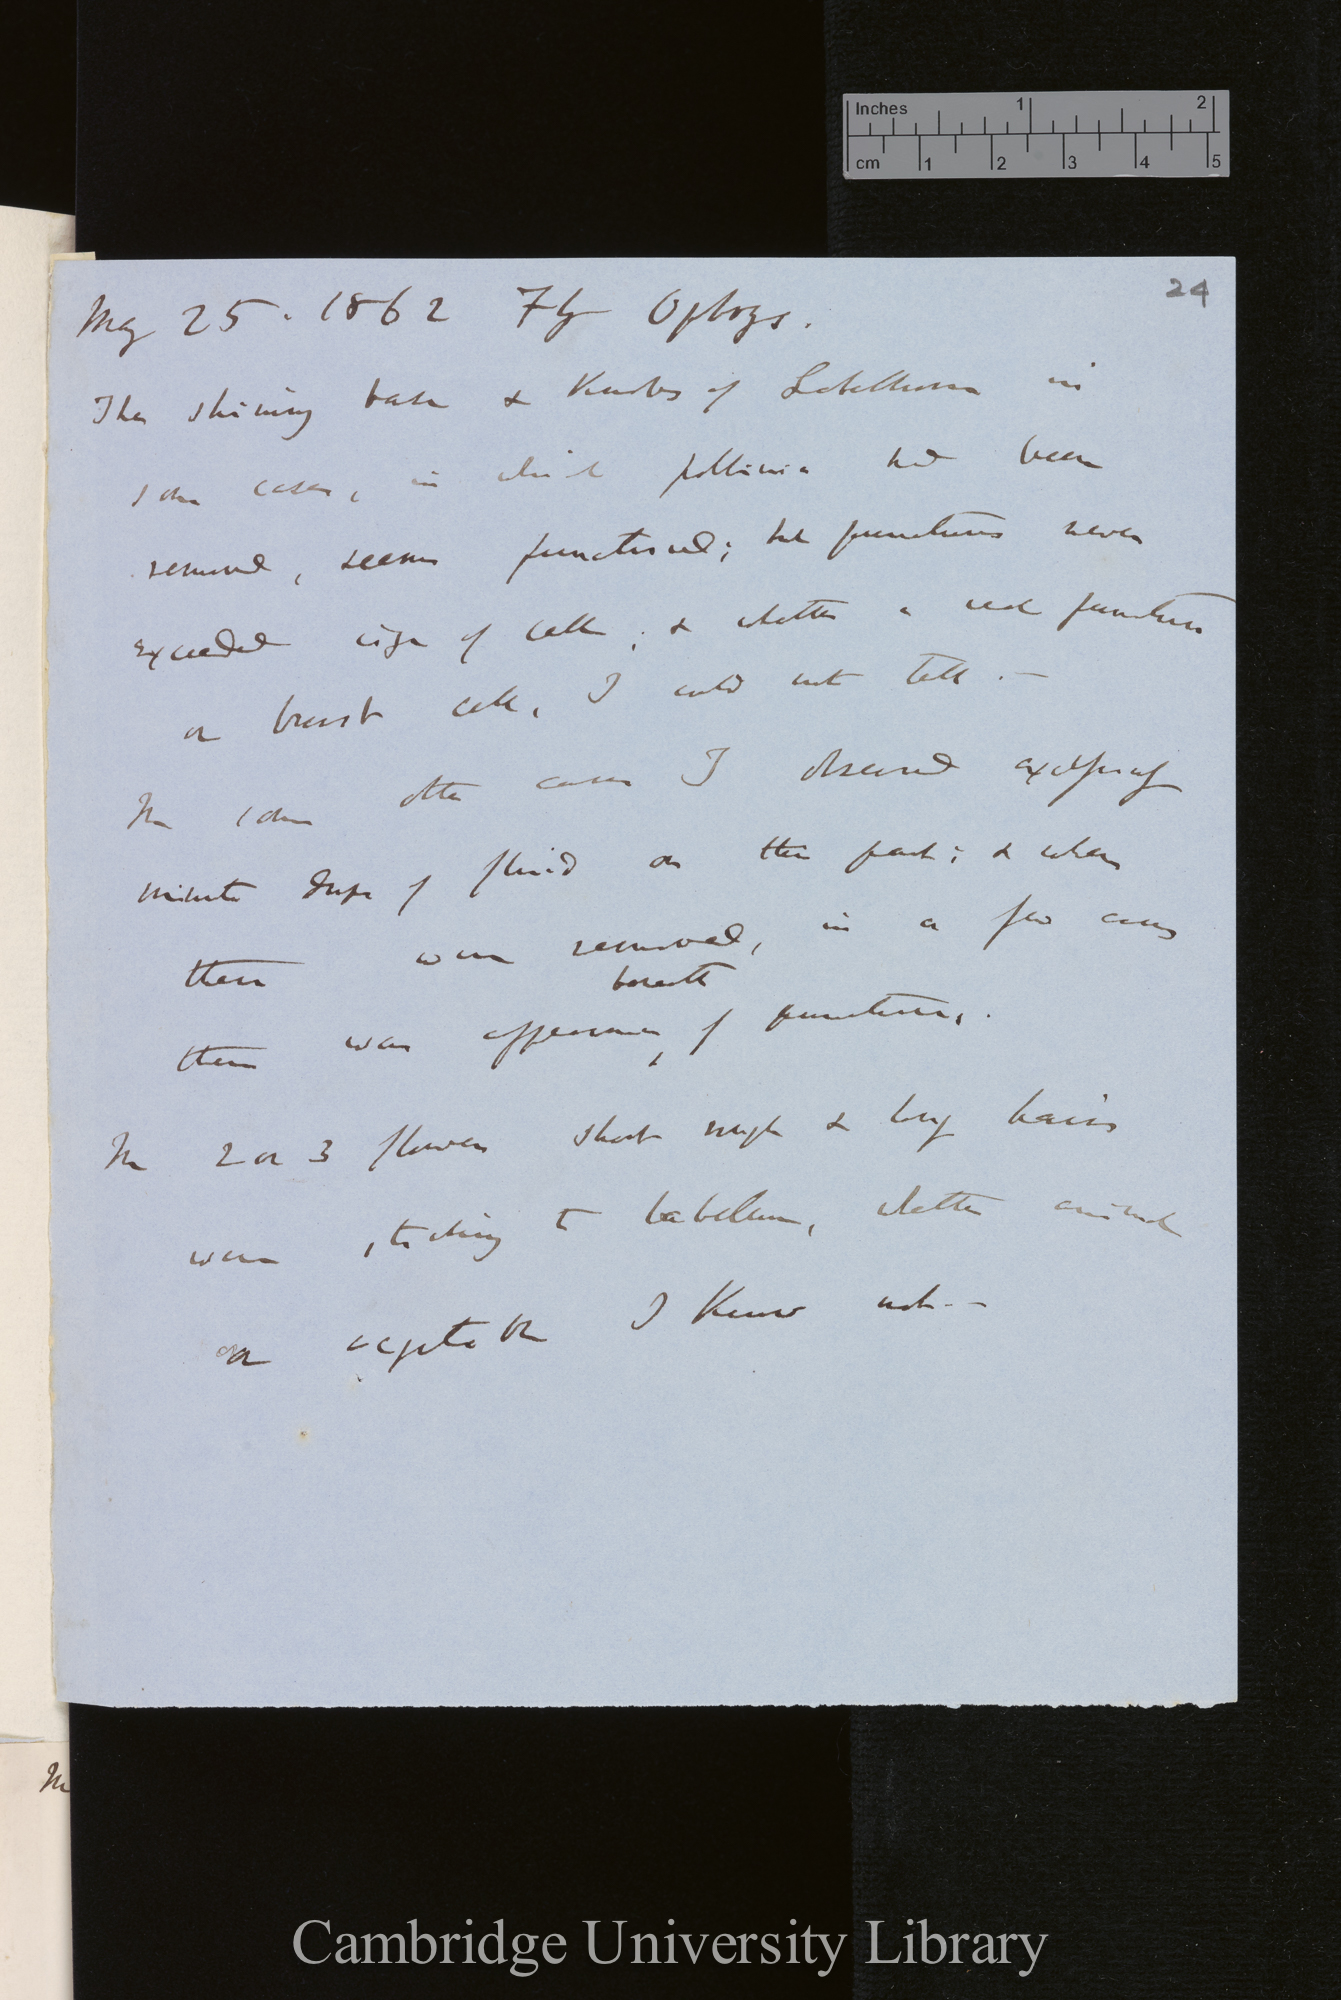 Inches 1 2
cm 1 2 3 4 5
24
May 25. 1862 Fly Ophrys.
The shining base & knobs of Labellum in
some cases, in which pollinia had been
removed, seems punctured; but punctures never
exceeded size of cell; & whether a real puncture
or burst cell, I could not tell.—
In some other cases I observed
minute drops of fluid on this part; & when
these were removed, in a few cases
beneath
there was appearance of punctures.
In 2 or 3 flowers short rough & long hairs
were sticking to labellum, whether animal
or vegetable I know not.—
In
Cambridge University Library